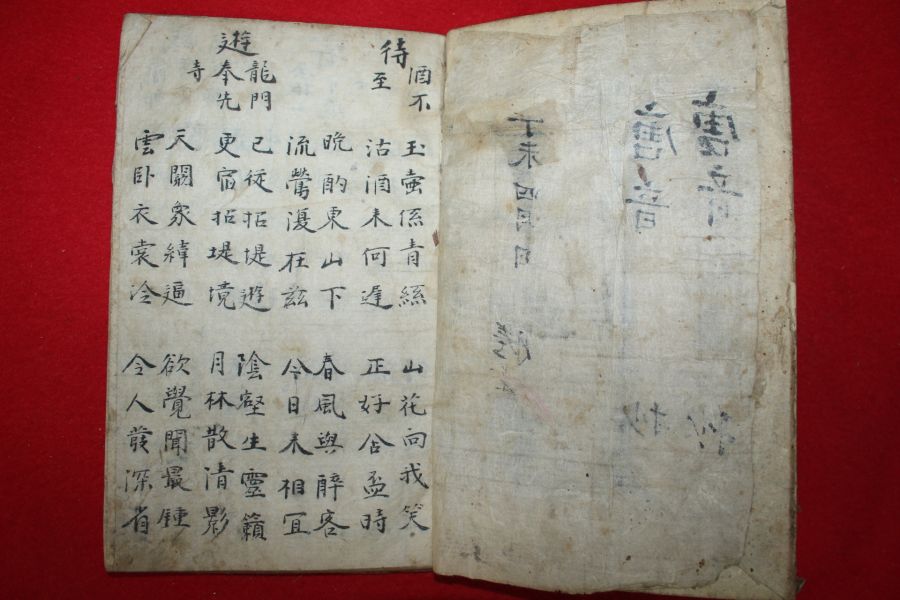 唐音
唐音 抄
丁未四月日
待酒不至
玉壺係青絲 山花向我笑
沽酒来何遲 正好含盃時
晩酌東山下 春風與醉客
流鶯復在玆 今日来相宜
遊龍門奉先寺
已從招堤遊 陰壑生靈籟
更宿招堤境 月林散清影
天闕象緯逼 欲覺聞最鍾
雲卧衣裳冷 令人發深省